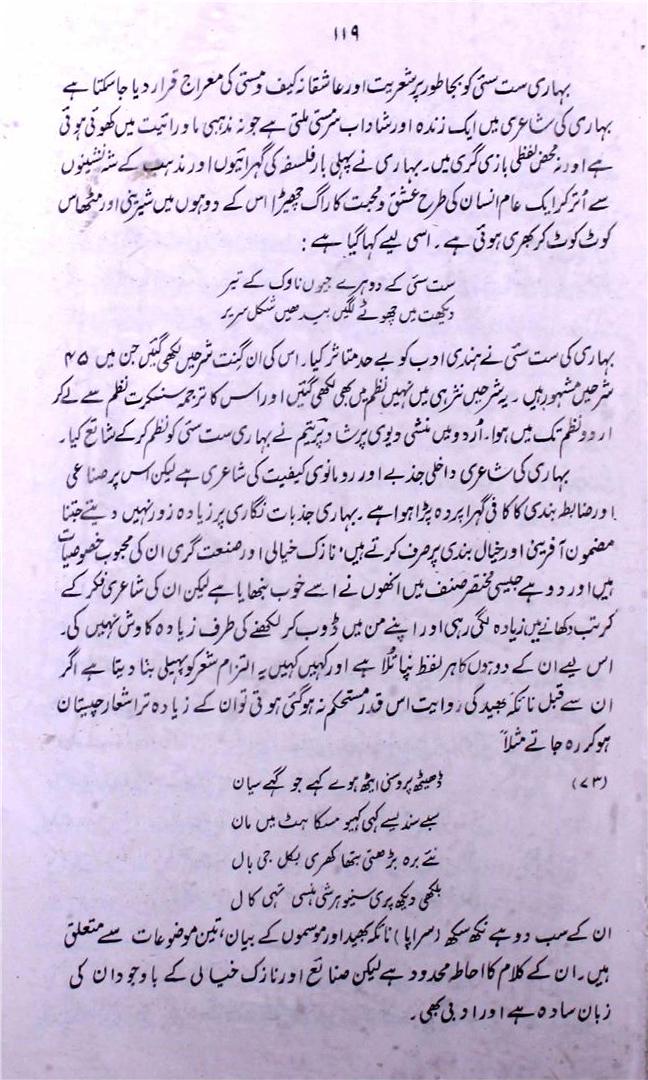 ۱۱۹
بہاری ست سئی کو بجا طور پر شعریت اور عاشقانہ کیف و مستی کی معراج قرار دیا جاسکتا ہے
بہاری کی شاعری میں ایک زندہ اور شاداب سرمستی ملتی ہے جو نہ مذہبی ماورائیت میں کھوئی ہوئی
ہے اور نہ محض لفظی بازی گری میں۔ بہاری نے پہلی بار فلسفہ کی گہرائیوں اور مذہب کے شہ نشینوں
سے اتر کر ایک عام انسان کی طرح عشق و محبت کا راگ چھیڑا اس کے دوہوں میں شیرینی اور مٹھاس
کوٹ کوٹ کر بھری ہوئی ہے۔ اسی لیے کہا گیا ہے :
ست سئی کے دوہرے جیوں ناوک کے تیر
دیکھت میں چھوٹے لگیں بیدھیں سکل سریر
بہاری کی ست سئی نے ہندی ادب کو بے حد متاثر کیا۔ اس کی ان گنت شرحیں لکھی گئیں جن میں ۴۵
شرحیں مشہور ہیں۔ یہ شرحیں نثر ہی میں نہیں نظم میں بھی لکھی گئیں اور اس کا ترجمہ سنسکرت نظم سے لے کر
اردو نظم تک میں ہوا۔ اُردو میں منشی دیوی پرشاد پریتم نے بہاری ست سئی کو نظم کرکے شائع کیا۔
بہاری کی شاعری داخلی جذبے اور رومانوی کیفیت کی شاعری ہے لیکن اس پر صناعی
اور ضابطہ بندی کا کافی گہرا پردہ پڑا ہوا ہے۔ بہاری جذبات نگاری پر زیادہ زور نہیں دیتے جتنا
مضمون آفرینی اور خیال بندی پر صرف کرتے ہیں، نازک خیالی اور صنعت گری ان کی محبوب خصوصیات
ہیں اور دوہے جیسی مختصر صنف میں انھوں نے اسے خوب نبھایا ہے لیکن ان کی شاعری فکر کے
کرتب دکھانے میں زیادہ لگی رہی اور اپنے من میں ڈوب کر لکھنے کی طرف زیادہ کاوش نہیں کی۔
اس لیے ان کے دوہوں کا ہر لفظ نپا تُلا ہے اور کہیں کہیں یہ التزام شعر کو پہیلی بنا دیتا ہے اگر
ان سے قبل نائکہ بھید کی روایت اس قدر مستحکم نہ ہوگئی ہوتی تو ان کے زیادہ تر اشعار چیستان
ہو کر رہ جاتے مثلاً
(۷۳) ڈھیٹھ پروسنی ایٹھ ہوے کہے جو گہے سیان
سبے سندیسے کہی کہیو مسکاہٹ میں مان
نئے برہ بڑھتی بتھا کھری بکل جی بال
بلکھی دیکھ پری سینو ہرشی ہنسی تہی کال
ان کے سب دوہے نکھ سکھ (سراپا) نائکہ بھید اور موسموں کے بیان، تین موضوعات سے متعلق
ہیں۔ ان کے کلام کا احاطہ محدود ہے لیکن صنائع اور نازک خیالی کے باوجود ان کی
زبان سادہ ہے اور ادبی بھی۔